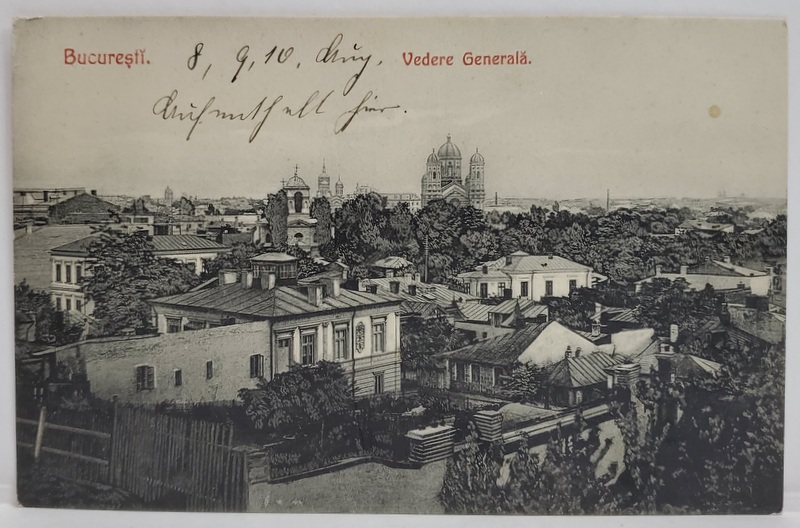 Bucureştĭ.
8, 9, 10. Aug.
Vedere Generală.
Aufenthalt hier.